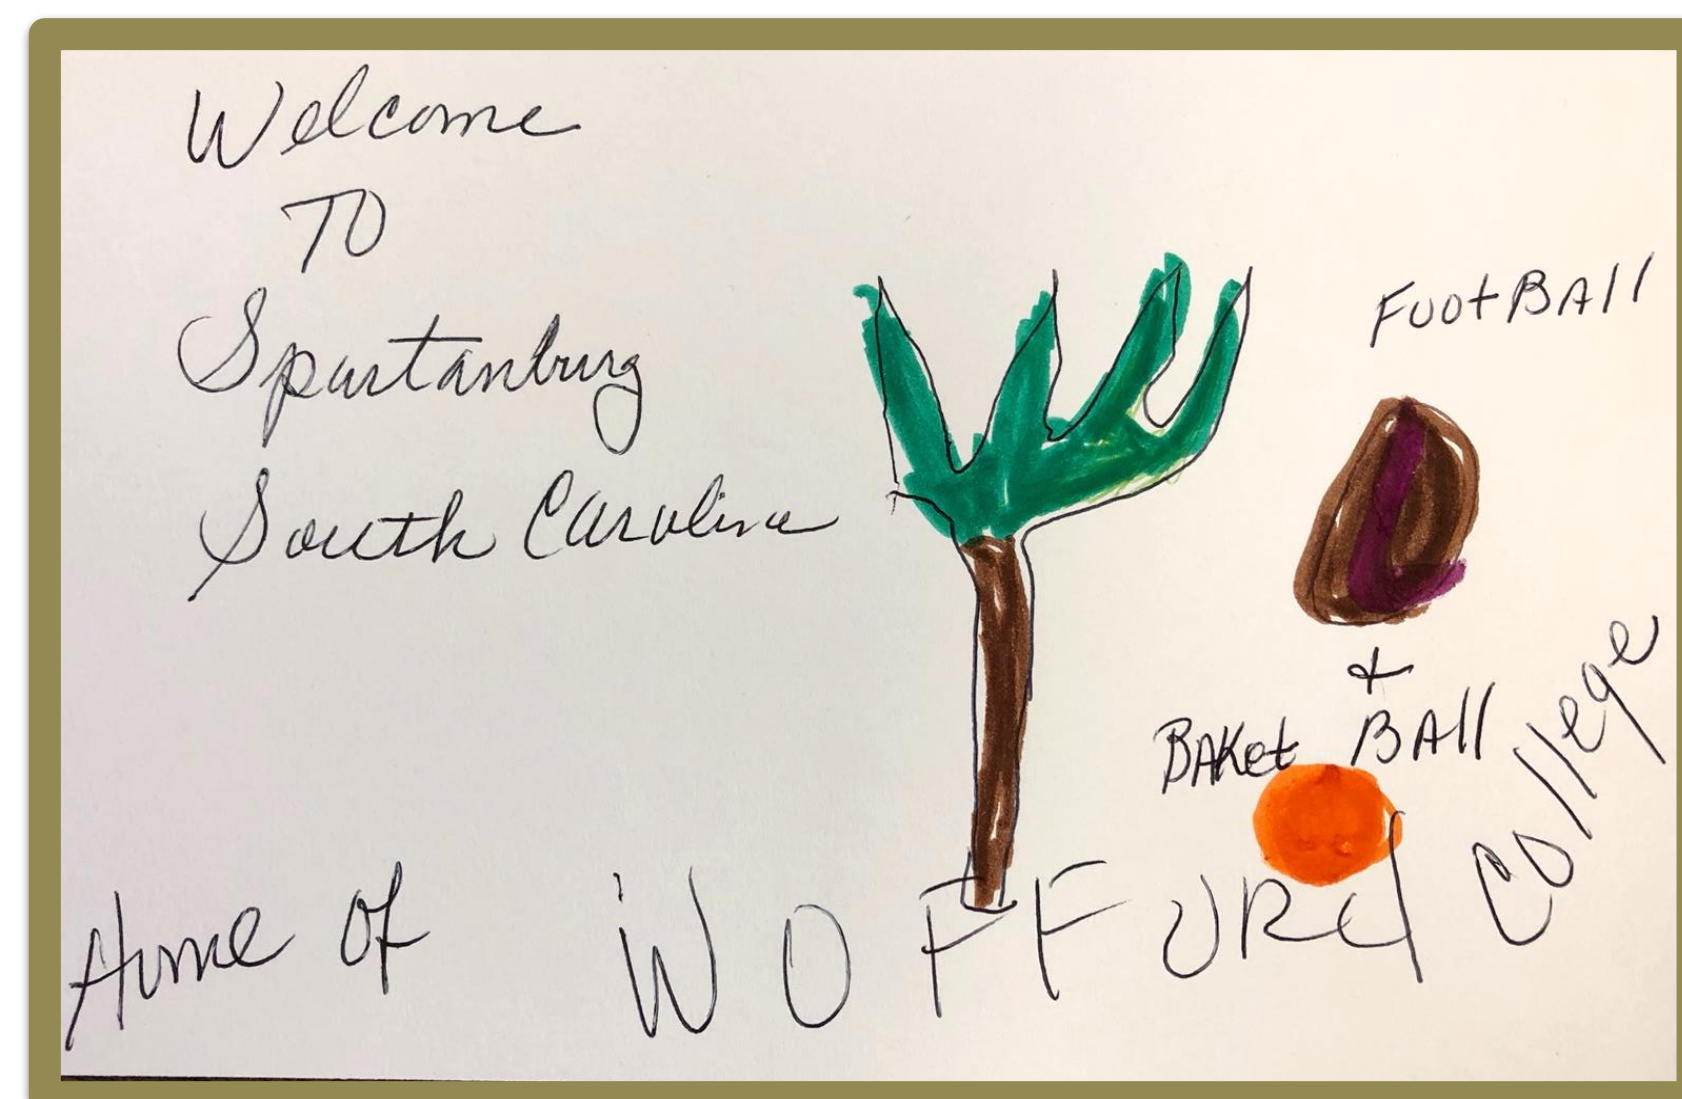 Welcome
TO
Spartanburg
South Carolina
FootBAll
+
BAKet BAll
Home of WOFFORd College